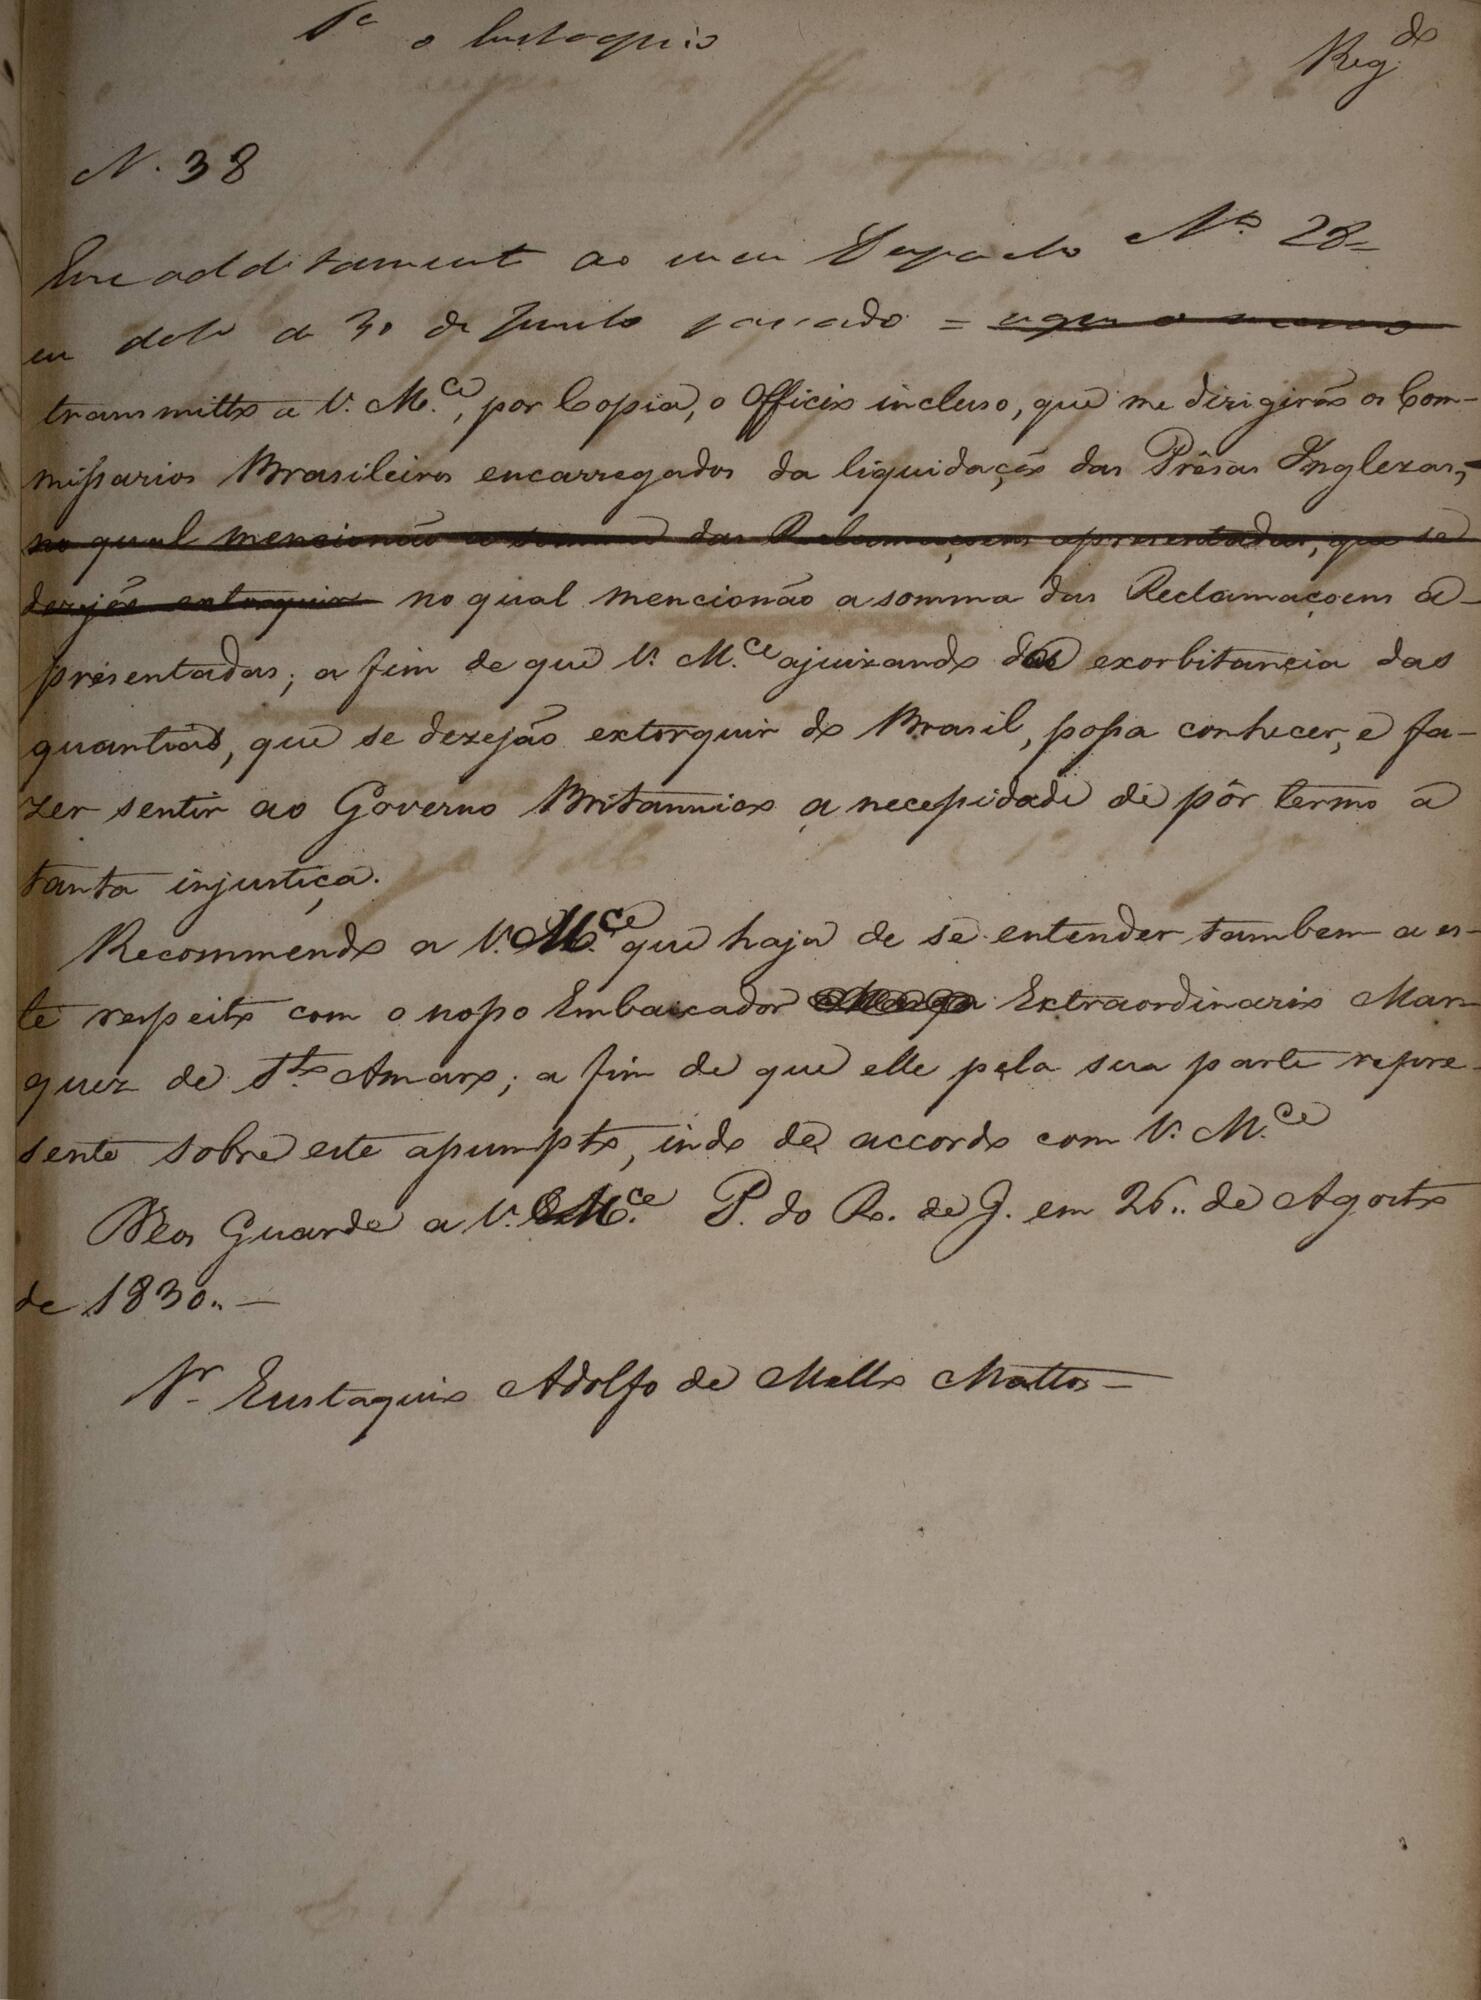 Pª o Eustaquio
Reg.do
N. 38
Em additamento ao meu Despacho Nº 28
em data de 30 de Junho passado =
transmitto a V. M.ce, por Copia, o Officio incluso, que me dirigirão os Com-
missarios Brasileiros encarregados da liquidação das Prêsas Inglezas,
no qual mencionão a somma das Reclamaçoens apresentadas, que se
dezejão extorquir no qual mencionão a somma das Reclamaçoens a-
presentadas; a fim de que V. M.ce ajuizando da exorbitancia das
quantias, que se dezejão extorquir do Brasil, possa conhecer, e fa-
zer sentir ao Governo Britannico a necessidade de pôr termo a
tanta injustiça.
Recommendo a V. M.ce que haja de se entender tambem a es-
te respeito com o nosso Embaixador Extraordinario Mar-
quez de Sto Amaro; a fim de que elle pela sua parte repre-
sente sobre este assumpto, indo de accordo com V. M.ce
Deos Guarde a V. M.ce P. do R. de J. em 26 de Agosto
de 1830. —
Sr Eustaquio Adolfo de Mello Mattos —